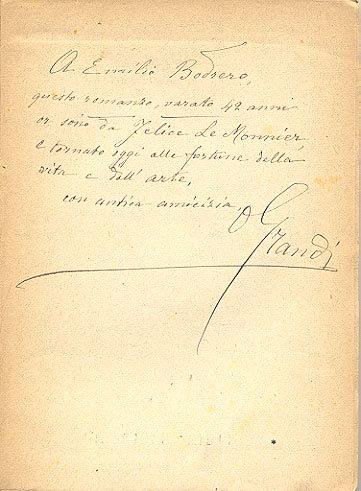 A Emilio Bodrero,
questo romanzo, varato 42 anni
or sono da Felice Le Monnier,
e tornato oggi alle fortune della
vita e dell'arte,
con antica amicizia
O Grandi